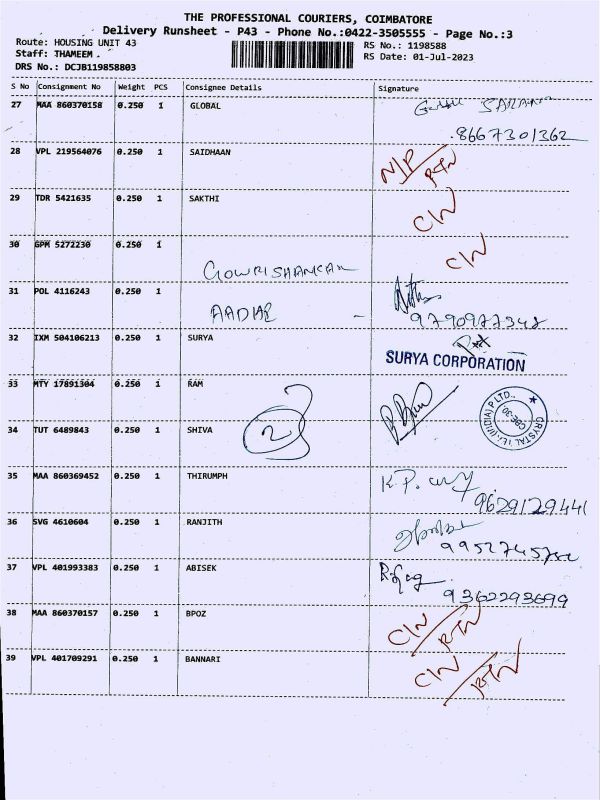 THE PROFESSIONAL COURIERS, COIMBATORE
Delivery Runsheet - P43 - Phone No.:0422-3505555 - Page No.:3
Route: HOUSING UNIT 43 RS No.: 1198588
Staff: THAMEEM . RS Date: 01-Jul-2023
DRS No.: DCJB119858803
S No Consignment No Weight PCS Consignee Details Signature
27 MAA 860370158 0.250 1 GLOBAL
8667301362
28 VPL 219564076 0.250 1 SAIDHAAN N/P RTN
29 TDR 5421635 0.250 1 SAKTHI C/N
30 GPM 5272230 0.250 1 C/N
GOWRISHANKAR
31 POL 4116243 0.250 1
AADHE - 9790977348
32 IXM 504106213 0.250 1 SURYA
SURYA CORPORATION
33 MTY 17891304 0.250 1 RAM
CRYSTAL (INDIA) P LTD., CBE-30
34 TUT 6489843 0.250 1 SHIVA 2
35 MAA 860369452 0.250 1 THIRUMPH K.P.
9629129441
36 SVG 4610604 0.250 1 RANJITH
37 VPL 401993383 0.250 1 ABISEK
9362293699
38 MAA 860370157 0.250 1 BPOZ C/N RTN
39 VPL 401709291 0.250 1 BANNARI C/N RTN